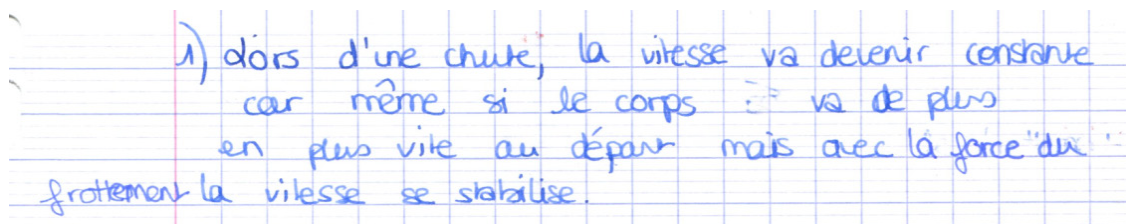 1) Lors d'une chute, la vitesse va devenir constante
car même si le corps va de plus
en plus vite au départ mais avec la force du
frottement la vitesse se stabilise.